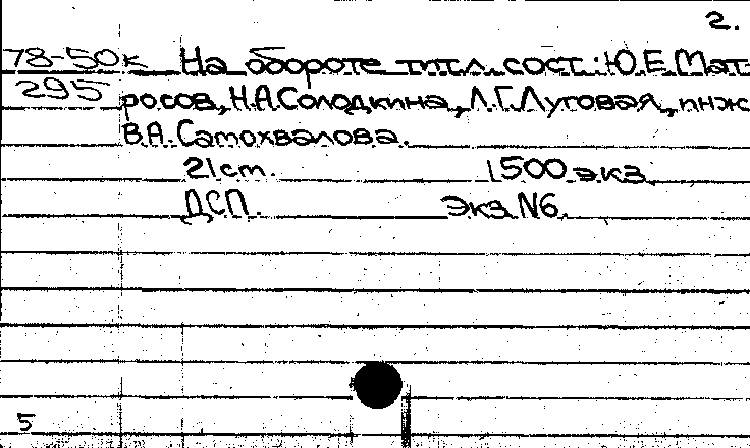 2.
78-50к На обороте титл. сост.: Ю.Е.Мат-
295 росов, Н.А.Солодкина, Л.Г.Луговая, инж
В.А.Самохвалова.
21 cm. 1500 экз.
ДСП. Экз. N6.
5